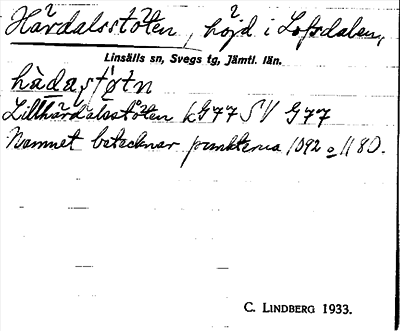 Härdalsstöten, höjd i Lofsdalen,
Linsälls sn, Svegs tg, Jämtl. län.
hàdastøtn
Lillhärdalsstöten kG77 SV G77
Namnet betecknar punkterna 1092 o 1180.
C. LINDBERG 1933.